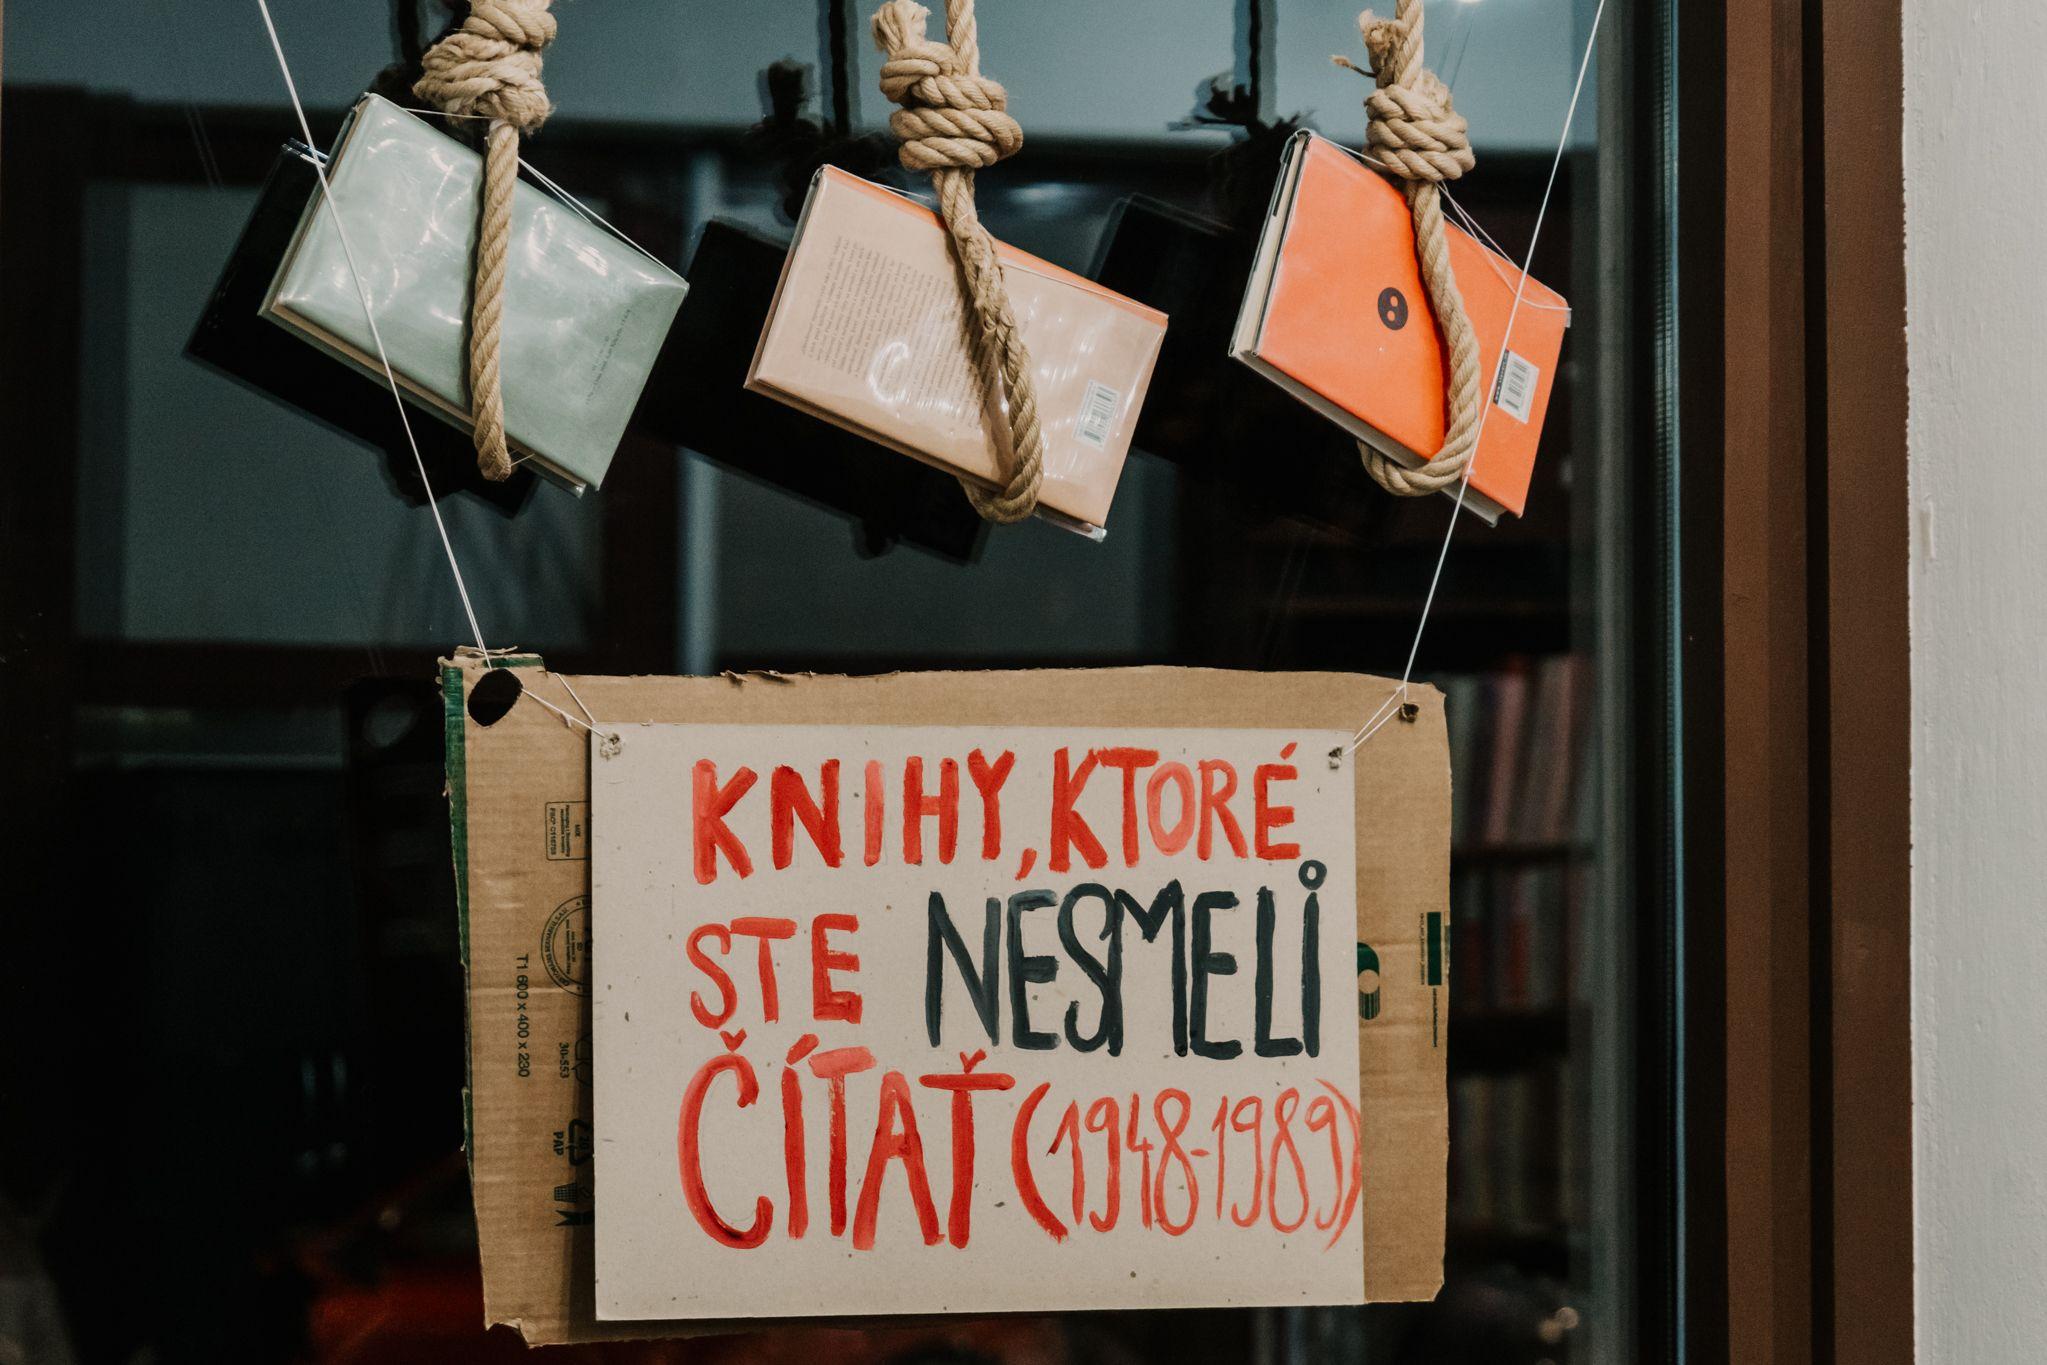 KNIHY, KTORÉ
STE NESMELI
ČÍTAŤ (1948-1989)
T1 600 x 400 x 230
30-553
PAP